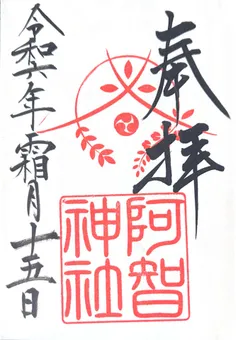 奉拝
阿智神社
令和六年霜月十五日